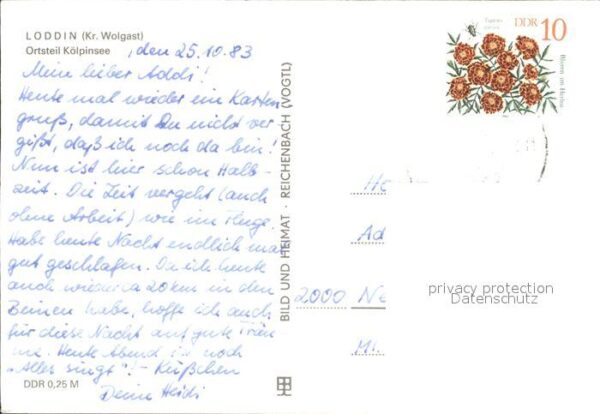 LODDIN (Kr. Wolgast)
Ortsteil Kölpinsee
, den 25.10.83
Mein lieber Addi!
Heute mal wieder ein Karten
gruß, damit Du nicht ver
gißt, daß ich noch da bin!
Nun ist hier schon Halb-
zeit. Die Zeit vergeht (auch
ohne Arbeit) wie im Fluge.
Habe heute Nacht endlich mal
gut geschlafen. Da ich heute
auch wieder ca 20 km in den
Beinen habe, hoffe ich auch
für diese Nacht auf gute Träu
me. Heute Abend ist noch
"Alles singt"! - Küßchen
Deine Heidi
DDR 0,25 M
BILD UND HEIMAT · REICHENBACH (VOGTL)
DDR 10
Tagetes
Blumen im Herbst
He
Ad
2000 Ne
Mi
privacy protection
Datenschutz